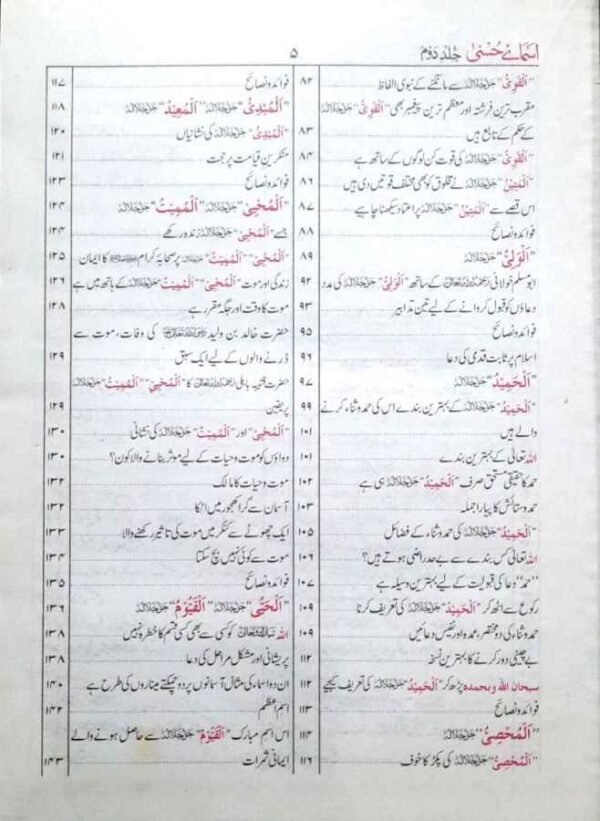 اسمائے حُسنیٰ جلد دوم
۵
"اَلْقَوِیُّ" جَلَّ جَلَالُہٗ سے مانگنے کے نبوی الفاظ ۸۲
مقرب ترین فرشتہ اور معظم ترین پیغمبر بھی "اَلْقَوِیُّ" جَلَّ جَلَالُہٗ
کے حکم کے تابع ہیں ۸۳
"اَلْقَوِیُّ" جَلَّ جَلَالُہٗ کی قوت کن لوگوں کے ساتھ ہے ۸۴
"اَلْمَتِیْنُ" جَلَّ جَلَالُہٗ نے مخلوق کو بھی مختلف قوتیں دی ہیں ۸۶
اس قصے سے "اَلْمَتِیْنُ" جَلَّ جَلَالُہٗ پر اعتماد سیکھنا چاہیے ۸۷
فوائد و نصائح ۸۸
"اَلْوَلِیُّ" جَلَّ جَلَالُہٗ ۸۹
ابو مسلم خولانی رَحِمَہُ اللہُ تَعَالٰی کے ساتھ "اَلْوَلِیُّ" جَلَّ جَلَالُہٗ کی مدد ۹۲
دعاؤں کو قبول کروانے کے لیے تین تدابیر ۹۳
فوائد و نصائح ۹۵
اسلام پر ثابت قدمی کی دعا ۹۶
"اَلْحَمِیْدُ" جَلَّ جَلَالُہٗ ۹۷
"اَلْحَمِیْدُ" جَلَّ جَلَالُہٗ کے بہترین بندے اس کی حمد و ثناء کرنے ۹۹
والے ہیں ۱۰۱
اللہ تعالیٰ کے بہترین بندے ۱۰۱
حمد کا حقیقی مستحق صرف "اَلْحَمِیْدُ" جَلَّ جَلَالُہٗ ہی ہے ۱۰۲
حمد و ستائش کا پیارا جملہ ۱۰۳
"اَلْحَمِیْدُ" جَلَّ جَلَالُہٗ کی حمد و ثناء کے فضائل ۱۰۵
اللہ تعالیٰ کس بندے سے بے حد راضی ہوتے ہیں؟ ۱۰۶
"حمد" دعا کی قبولیت کے لیے بہترین وسیلہ ہے ۱۰۷
رکوع سے اٹھ کر "اَلْحَمِیْدُ" جَلَّ جَلَالُہٗ کی تعریف کرنا ۱۰۹
حمد و ثناء کی دو مختصر، عمدہ اور نفیس دعائیں ۱۰۹
بے چینی دور کرنے کا بہترین نسخہ ۱۱۲
سبحان اللہ وبحمدہ پڑھ کر "اَلْحَمِیْدُ" جَلَّ جَلَالُہٗ کی تعریف کیجیے ۱۱۲
فوائد و نصائح ۱۱۳
"اَلْمُحْصِیُ" جَلَّ جَلَالُہٗ ۱۱۴
"اَلْمُحْصِیُ" جَلَّ جَلَالُہٗ کی پکڑ کا خوف ۱۱۶
فوائد و نصائح ۱۱۷
"اَلْمُبْدِیُٔ" جَلَّ جَلَالُہٗ "اَلْمُعِیْدُ" جَلَّ جَلَالُہٗ ۱۱۸
"اَلْمُبْدِیُٔ" جَلَّ جَلَالُہٗ کی نشانیاں ۱۲۰
منکرین قیامت پر حجت ۱۲۱
فوائد و نصائح ۱۲۳
"اَلْمُحْیِیْ" جَلَّ جَلَالُہٗ "اَلْمُمِیْتُ" جَلَّ جَلَالُہٗ ۱۲۴
جسے "اَلْمُحْیِیْ" جَلَّ جَلَالُہٗ زندہ رکھے ۱۲۴
"اَلْمُحْیِیْ" "اَلْمُمِیْتُ" جَلَّ جَلَالُہٗ پر صحابہ کرام کا ایمان ۱۲۵
زندگی اور موت "اَلْمُحْیِیْ" "اَلْمُمِیْتُ" جَلَّ جَلَالُہٗ کے ہاتھ میں ہے ۱۲۶
موت کا وقت اور جگہ مقرر ہے ۱۲۸
حضرت خالد بن ولید کی وفات، موت سے
ڈرنے والوں کے لیے ایک سبق ۱۲۹
حضرت قتیبہ باہلی رَحِمَہُ اللہُ تَعَالٰی کا "اَلْمُحْیِیْ" "اَلْمُمِیْتُ" جَلَّ جَلَالُہٗ
پر یقین ۱۲۹
"اَلْمُحْیِیْ" اور "اَلْمُمِیْتُ" جَلَّ جَلَالُہٗ کی نشانی ۱۳۰
دواؤں کو موت و حیات کے لیے موثر بنانے والا کون؟ ۱۳۰
موت و حیات کا مالک ۱۳۲
آسمان سے گرا کھجور میں اٹکا ۱۳۲
ایک چھوٹے سے کنکر میں موت کی تاثیر رکھنے والا ۱۳۳
موت سے کوئی نہیں بچ سکتا ۱۳۴
فوائد و نصائح ۱۳۵
"اَلْحَیُّ" جَلَّ جَلَالُہٗ "اَلْقَیُّوْمُ" جَلَّ جَلَالُہٗ ۱۳۶
اللہ کو کسی سے بھی کسی قسم کا خطرہ نہیں ۱۳۸
پریشانی اور مشکل مراحل کی دعا ۱۳۸
ان دو اسماء کی مثال آسمانوں پر دو چمکتے میناروں کی طرح ہے ۱۴۰
اسم اعظم ۱۴۲
اس اسم مبارک "اَلْقَیُّوْمُ" جَلَّ جَلَالُہٗ سے حاصل ہونے والے
ایمانی ثمرات ۱۴۳